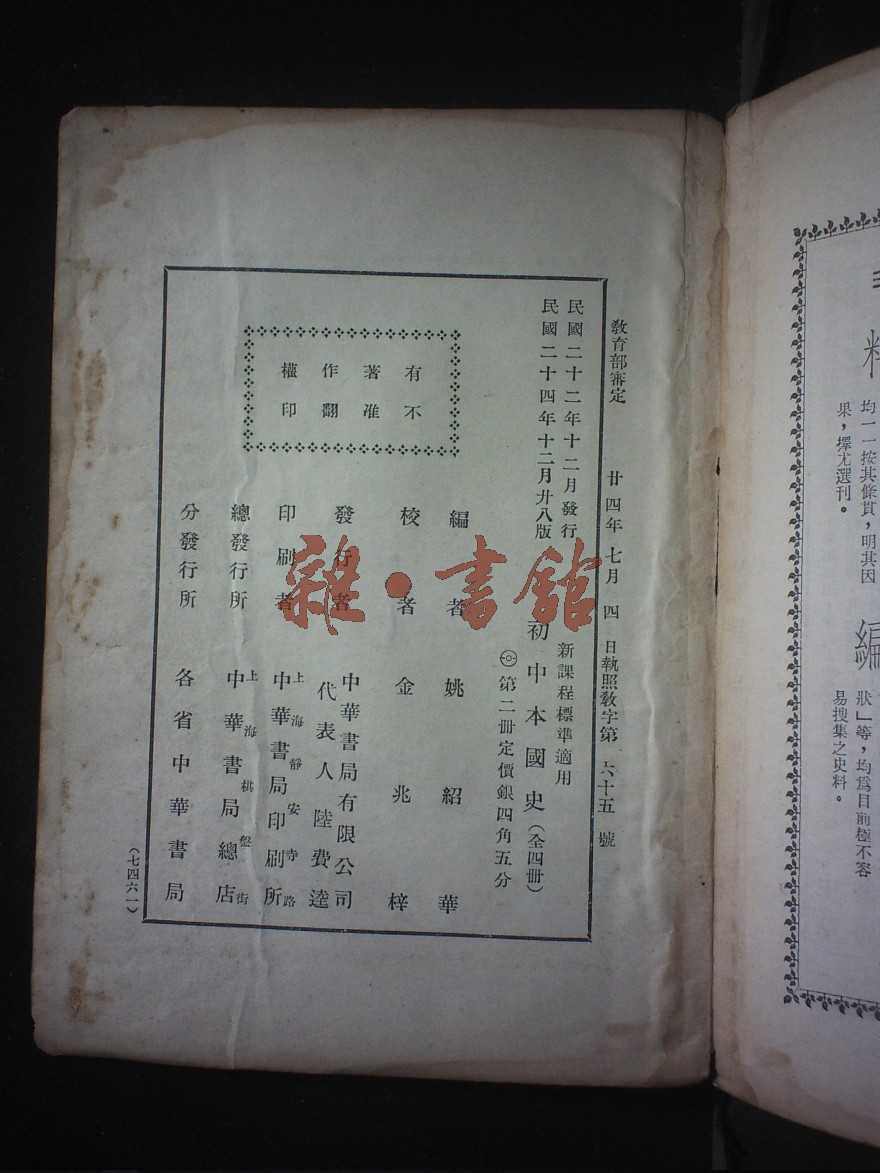 教育部審定
廿四年七月四日執照教字第六十五號
民國二十二年十二月發行
民國二十四年十二月廿八版
新課程標準適用
初中本國史(全四冊)
第二冊定價銀四角五分
有不
著准
作翻
權印
編者 姚紹華
校者 金兆梓
發行者 中華書局有限公司
代表人 陸費逵
印刷者 上海靜安寺路
中華書局印刷所
總發行所 上海棋盤街
中華書局總店
分發行所 各省中華書局
(七四六一)
雜·書館
料
均一一按其條貫,明其因
果,擇尤選刊。
編
狀」等,均爲目前極不容
易搜集之史料。